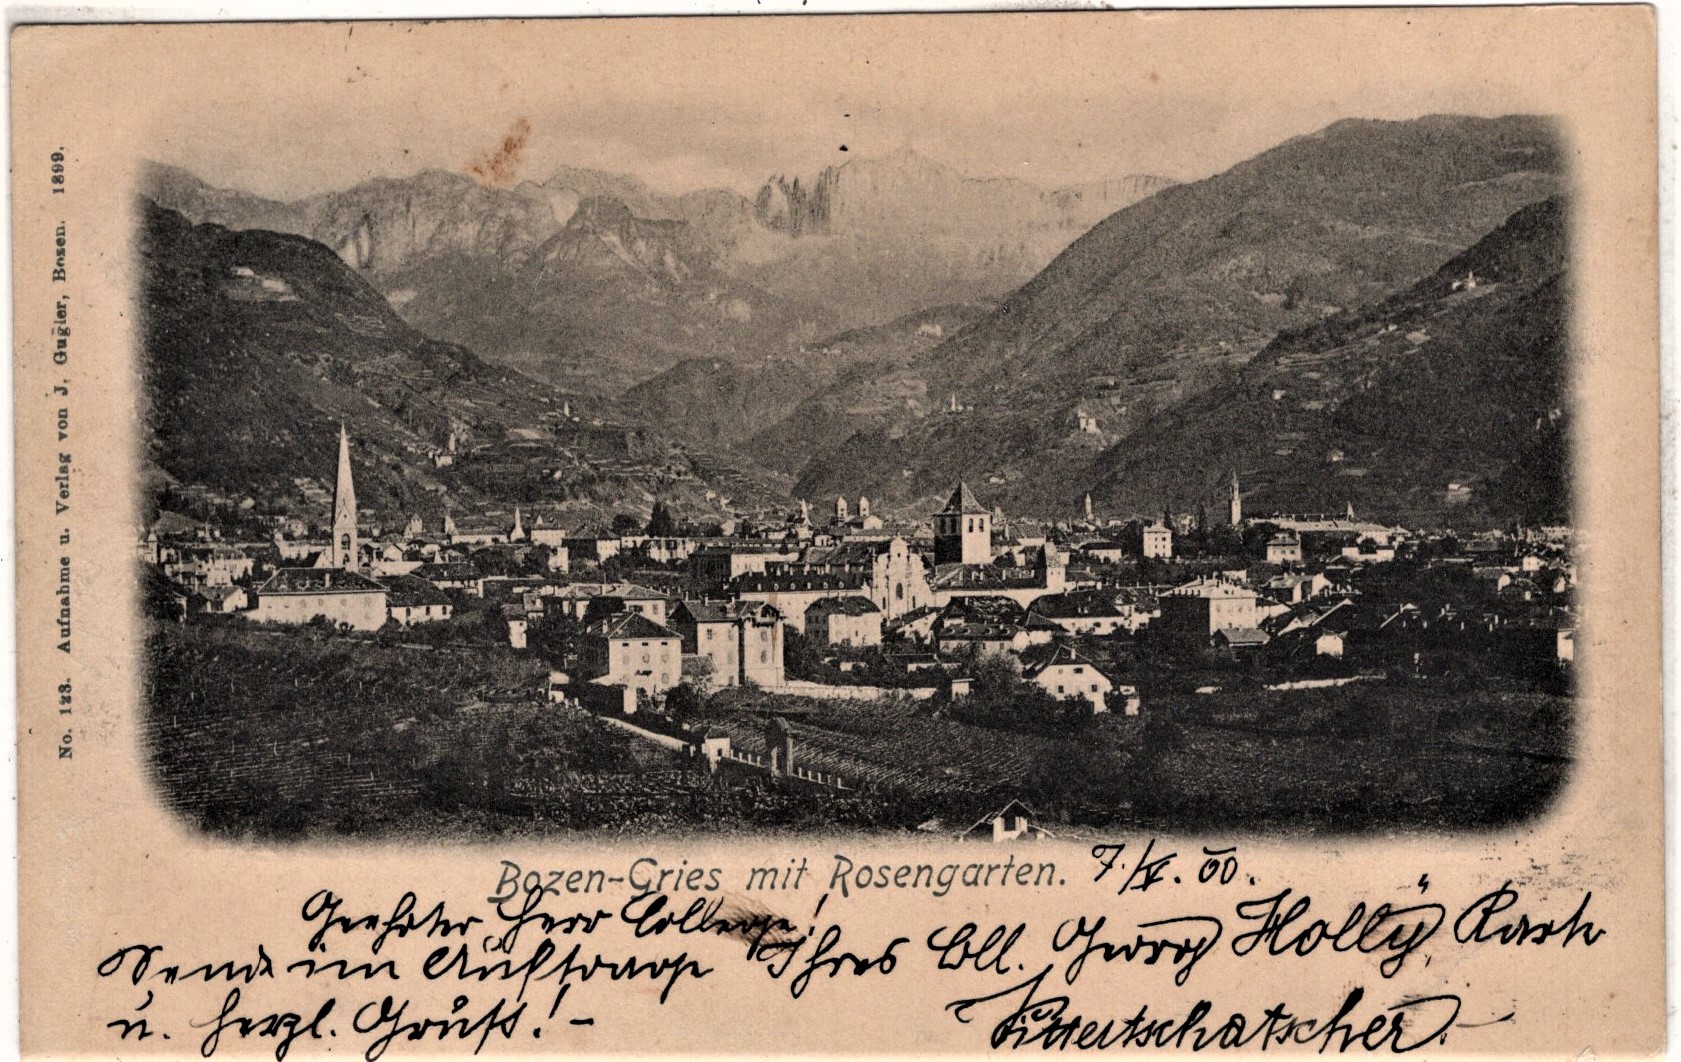 No. 123. Aufnahme u. Verlag von J. Gugler, Bozen. 1899.
Bozen-Gries mit Rosengarten. 7./V. 00.
Geehrter Herr College!
Sende im Auftrage Ihres Coll. Georg "Holly" Karte
u. herzl. Gruß! -